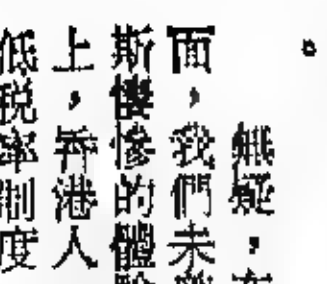 。
無疑，在
面，我們未
斯慘的體驗
上，香港人
低税率制度